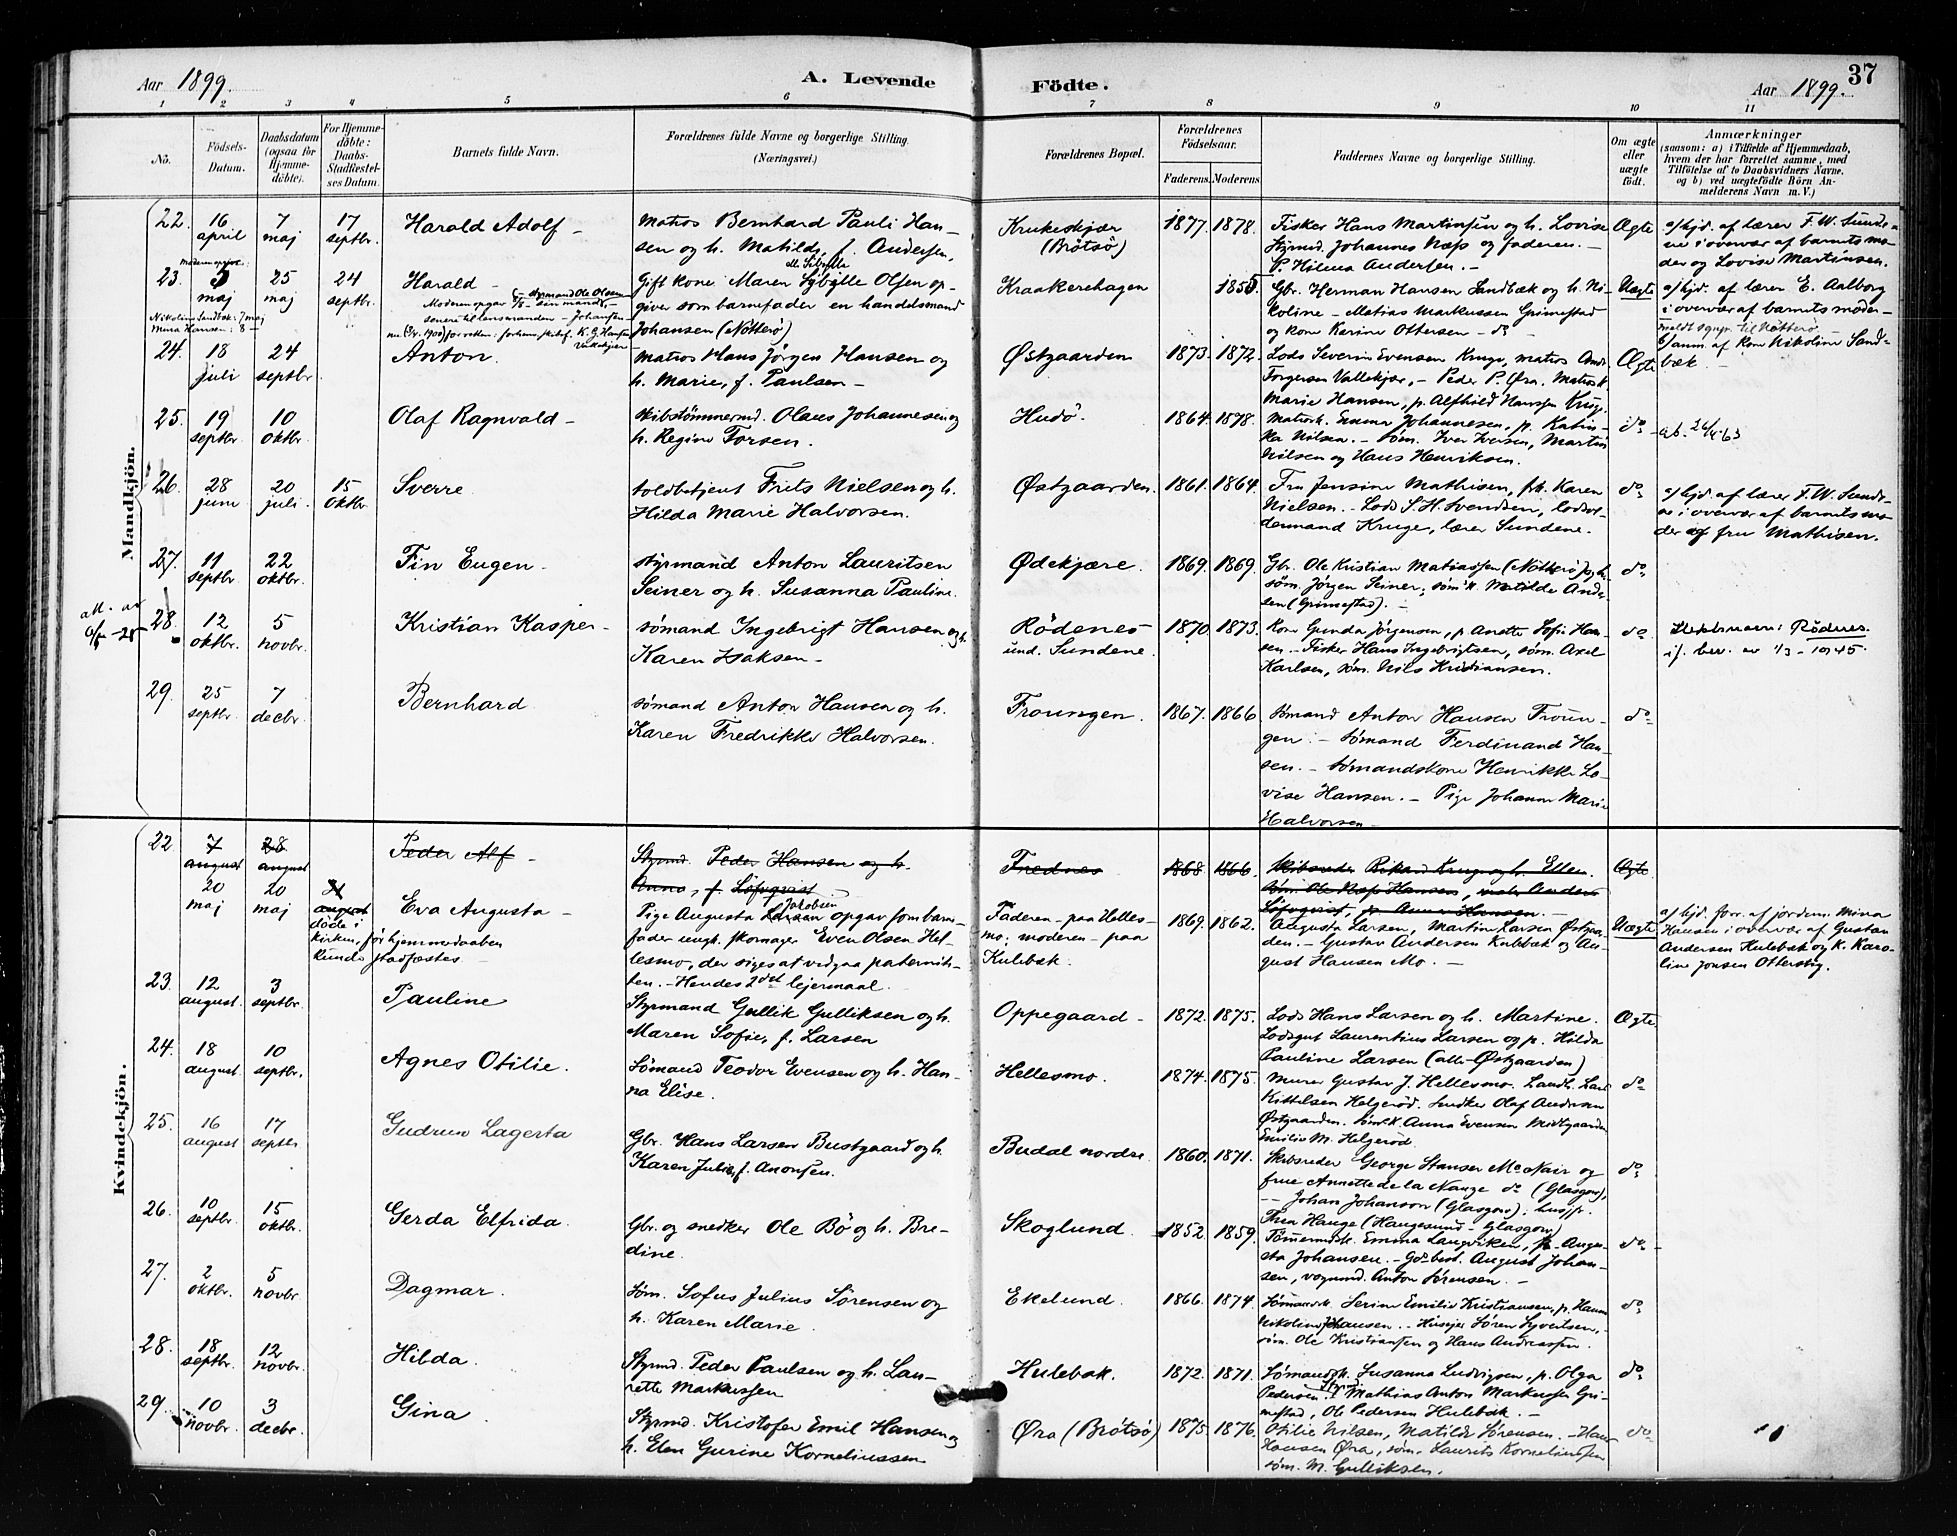 Aar 1899.
A. Levende
Födte.
Aar 1899.
37
1 2 3 4 5 6 7 8 9 10 11
No.
Födsels-Datum.
Daabsdatum (ogsaa for Hjemme-döbte).
For Hjemme-döbte: Daabs-Stadfæstel-ses Datum.
Barnets fulde Navn.
Forældrenes fulde Navne og borgerlige Stilling. (Næringsvei.)
Forældrenes Bopæl.
Forældrenes Födselsaar.
Faderens. Moderens.
Faddernes Navne og borgerlige Stilling.
Om ægte eller uægte födt.
Anmærkninger
(saasom: a) i Tilfælde af Hjemmedaab,
hvem der har forrettet samme, med
Tilföielse af to Daabsvidners Navne.
og b) ved uægtefödte Börn An-
melderens Navn m. V.)
Mandkjön.
22. 16 april 7 maj 17 septbr. Harald Adolf –
Matros Bernhard Pauli Han-
sen og h. Matilde, f. Andersen,
Krukekjær (Brøtsø)
1877. 1878.
Fisker Hans Martinsen og h. Lovise
Styrmd. Johannes Næs og faderen. –
P. Hilma Andersen. –
Ægte
a/ hjd. af lærer F. W. Sunde-
ne i overvær af barnets mo-
der og Lovise Martinsen.
23. 5 maj 25 maj 24 septbr. Harald –
Gift kone Maren Sybille Olsen op-
giver som barnefader en handelsmand
Johansen (Nötterö)
Kraakerehagen
1855
Gbr. Herman Hansen Sandbæk og h. Ni-
koline – Matias Markussen Grimestad
og kone Karine Ottersen – do
Uægte
a/ hjd. af lærer E. Aalborg
i overvær af barnets moder –
meldt sgnpr. til Nötterö. –
b/ anm. af kone Nikoline Sand-
bæk. –
24. 18 juli 24 septbr. Anton.
Matros Hans Jörgen Hansen og
h. Marie, f. Paulsen –
Østgaarden
1873. 1872.
Lods Severin Evensen Kruge, matros And.
Torgersen Vallekjær, – Peder P. Øra. Matrosk.
Marie Hansen, p. Alfhild Hansen Kruge.
Ægte
25. 19 septbr. 10 oktbr. Olaf Ragnvald –
Skibstömmermd. Olaus Johannesen og
h. Regine Torsen.
Hudö.
1864. 1878.
Matrosk. Emma Johannesen, p. Katin-
ka Nilsen. – söm. Iver Iversen, Martin
Nilsen og Hans Henriksen.
do
26. 28 juni 20 juli 15 oktbr. Sverre
toldbetjent Frits Nielsen og h.
Hilda Marie Halvorsen.
Østgaarden.
1861. 1864.
Fru Jensine Mathisen, frk. Karen
Nielsen. – Lods S. H. Svendsen, lodsol-
dermand Kruge, lærer Sundene.
do
a/ hjd. af lærer F. W. Sund-
ne i overvær af barnets mo-
der og fru Mathisen.
27. 11 septbr. 22 oktbr. Fin Eugen –
styrmand Anton Lauritsen
Seiner og h. Susanna Pauline.
Ødekjære.
1869. 1869.
Gbr. Ole Kristian Matiassen (Nötterö) og h.
söm. Jörgen Seiner, söm. k. Matilde Ander-
sen (Grimestad). –
do
28. 12 oktbr. 5 novbr. Kristian Kasper –
sömand Ingebrigt Hansen og h.
Karen Isaksen –
Rödenes und. Sundene.
1870. 1873.
Kone Gunda Jörgensen, p. Anette Sofie Han-
sen. – Fisker Hans Ingebrigtsen, söm. Axel
Karlsen, söm. Nils Kristiansen.
do
Slektsnavn: Rødnes.
if. bev. av 1/3 – 1945.
29. 25 septbr. 7 decbr. Bernhard
sömand Anton Hansen og h.
Karen Fredrikke Halvorsen.
Froungen.
1867. 1866.
Sömand Anton Hansen Froun-
gen. – Sömand Ferdinand Han-
sen. – Sömandskone Henrikke Lo-
vise Hansen. – Pige Johanne Marie
Halvorsen –
do
Kvindekjön.
22 7 august 28 august Peder Alf –
Styrmd. Peder Hansen og h.
Anna, f. Löfqvist
Frednes
1868 1866
Ægte
20 maj 20 maj Eva Augusta –
döde i kirken, för hjemmedaaben kunde stadfæstes
Pige Augusta Larsen Jakobsen opgav som barne-
fader ungk. skomager Even Olsen Hel-
lesmo, der siges at vedgaa paternite-
ten. – Hendes 2det lejermaal.
Faderen – paa Helles-
mo; moderen – paa
Kulebæk.
1869. 1862.
Augusta Larsen, Martin Larsen Østgaar-
den. – Gustav Andersen Kulebæk og Au-
gust Hansen Mo. –
Uægte
a/ hjd. forr. af jordem. Mina
Hansen i overvær af Gustav
Andersen Hulebæk og k. Karo-
line Jonsen Ottersbg.
23. 12 august. 3 septbr. Pauline
Styrmand Gullik Gulliksen og h.
Maren Sofie, f. Larsen
Oppegaard –
1872. 1875.
Lods Hans Larsen og h. Martine.
Lodsgut Laurentius Larsen og p. Hilda
Pauline Larsen (alle Østgaarden)
Ægte.
24. 18 august. 10 septbr. Agnes Otilie.
Sömand Teodor Evensen og h. Han-
na Elise.
Hellesmo.
1874. 1875.
Murer Gustav J. Hellesmo. Landh. Lars
Kittilsen Helgeröd. Snedker Olaf Andersen
Østgaarden. Söm. k. Anna Evensen Midtgaarden
Emilie M. Helgeröd
do
25. 16 august 17 septbr Gudrun Lagerta
Gbr. Hans Larsen Bustgaard og h.
Karen Julie, f. Anonsen.
Budal nordre
1860. 1871.
Skibsreder George Stanser McNair og
frue Annette de la Nauze do (Glasgow),
– Johan Johanson (Glasgow); husjp.
Thea Hauge (Haugesund – Glasgow)
do
26. 10 septbr. 15 oktbr. Gerda Elfrida.
Gbr. og snedker Ole Bö og h. Bre-
dine.
Skoglund.
1852. 1859.
Tömmermk. Emma Langviken, p. Augu-
sta Johansen. – Gdbest. August Johan-
sen, vognmd. Anton Sörensen. –
do
27. 2 oktbr. 5 novbr. Dagmar.
Söm. Sofus Julius Sörensen og
h. Karen Marie.
Ekelund.
1866. 1874.
Sömandsk. Serine Emilie Kristiansen, p. Hanna
Nikoline Johansen. – Husejer Sören Syvertsen,
söm. Ole Kristiansen og Hans Andreassen.
do
28. 18 septbr. 12 novbr. Hilda.
Styrmd. Peder Paulsen og h. Lau-
rette Markussen
Hulebak.
1872. 1871.
Sömandsk. Susanna Ludvigsen, p. Olga
Pedersen. Styrmd. Mathias Anton Markussen Gri-
mestad, Ole Pedersen Hulebak. –
do
29. 10 novbr. 3 decbr. Gina.
Styrmd. Kristofer Emil Hansen og
h. Elen Gurine Korneliussen
Øra (Brötsö)
1875. 1876.
Otilie Nilsen, Matilde Sörensen. – Hans
Hansen Øra, söm. Laurits Korneliussen
söm. M. Gulliksen.
do